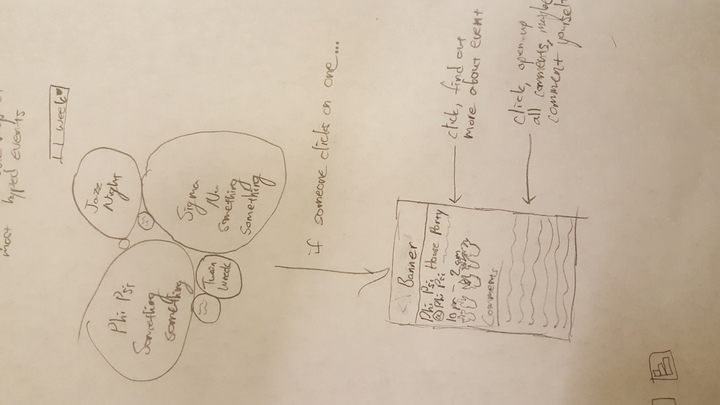 most hyped events
1 week
Jazz
Night
Sigma
Nu
something
Something
Phi Psi
Something
something
Twin
if someone clicks on one...
Banner
Phi Psi House Party
@ Phi Psi
10pm - 2am
Comments
click, find out
more about event
click, open up
all comments, maybe
comment yourself